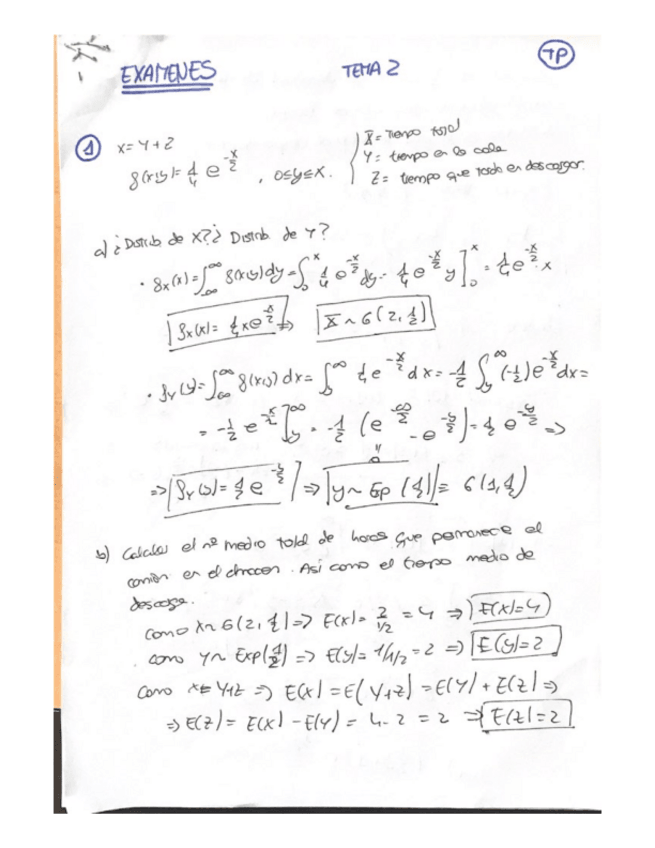 EXAMENES TEMA 2 TP
1 X = Y + Z
f(x,y) = 1/4 e^(-x/2) , 0≤y≤x.
X = Tiempo total
Y = tiempo en la cola
Z = tiempo que tarda en descargar.
a) ¿Distrib de X? ¿Distrib de Y?
· fx(x) = ∫_{-∞}^{∞} f(x,y) dy = ∫_0^x 1/4 e^(-x/2) dy = 1/4 e^(-x/2) y]_0^x = 1/4 e^(-x/2) x
fx(x) = 1/4 x e^(-x/2) => X ~ G(2, 1/2)
· fY(y) = ∫_{-∞}^{∞} f(x,y) dx = ∫_y^∞ 1/4 e^(-x/2) dx = -1/2 ∫_y^∞ (-1/2) e^(-x/2) dx =
= -1/2 e^(-x/2)]_y^∞ = -1/2 (e^(-∞/2) - e^(-y/2)) = 1/2 e^(-y/2) =>
0
=> fY(y) = 1/2 e^(-y/2) => Y ~ Exp(1/2) ≡ G(1, 1/2)
b) Calcular el nº medio total de horas que permanece el
camión en el almacen. Así como el tiempo medio de
descarga.
Como X ~ G(2, 1/2) => E(X) = 2/(1/2) = 4 => E(X) = 4
. como Y ~ Exp(1/2) => E(Y) = 1/1/2 = 2 => E(Y) = 2
Como X = Y+Z => E(X) = E(Y+Z) = E(Y) + E(Z) =>
=> E(Z) = E(X) - E(Y) = 4 - 2 = 2 => E(Z) = 2